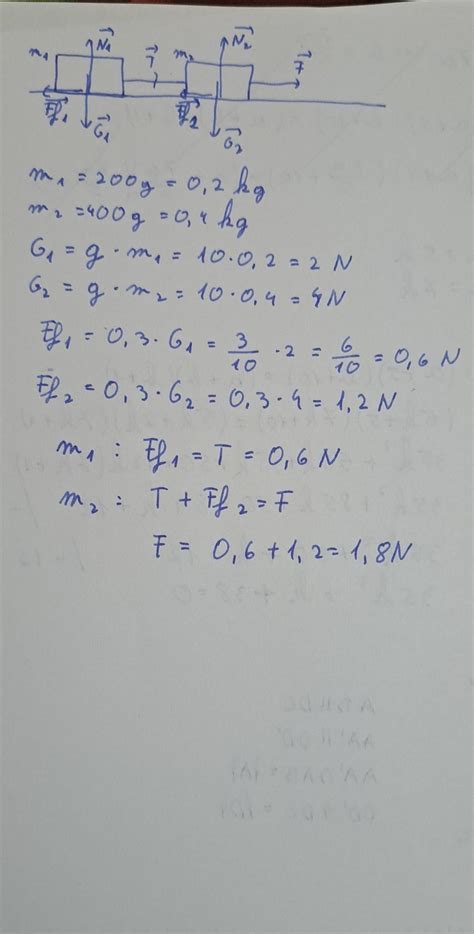 m₁ N₁ T m₂ N₂ F
Ff₁ G₁ Ff₂ G₂
m₁ = 200g = 0,2 kg
m₂ = 400g = 0,4 kg
G₁ = g · m₁ = 10·0,2 = 2 N
G₂ = g · m₂ = 10·0,4 = 4N
Ff₁ = 0,3 · G₁ = 3/10 · 2 = 6/10 = 0,6 N
Ff₂ = 0,3 · G₂ = 0,3 · 4 = 1,2 N
m₁ : Ff₁ = T = 0,6 N
m₂ : T + Ff₂ = F
F = 0,6 + 1,2 = 1,8N